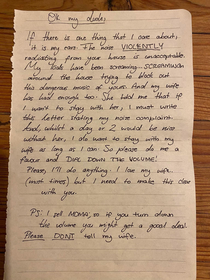 Oh my dude,
If there is one thing that I care about,
it is my ears. The noise VIOLENTLY
radiating from your house is unacceptable.
My kids have been screaming
around the house trying to block out
this dangerous music of yours. And my wife
has had enough too! She told me that if
I want to stay with her, I must write
this letter stating my noise complaint.
And whilst a day or 2 would be nice
without her, I do want to stay with my
wife as long as I can. So please do me a
favour and DIAL DOWN THE VOLUME!
Please, I'll do anything. I love my wife
(most times) but I need to make this clear
with you.
PS: I sell so if you turn down
the volume you might get a good deal.
Please DON'T tell my wife.